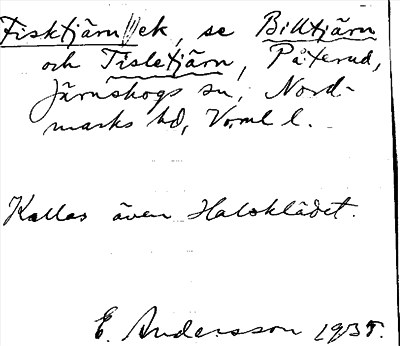 Fisktjärn ek, se Billtjärn
och Tisletjärn, Påterud,
Järnskogs sn, Nord-
marks hd, Vrml l.
Kallas även Halsklädet.
E. Andersson 1935.